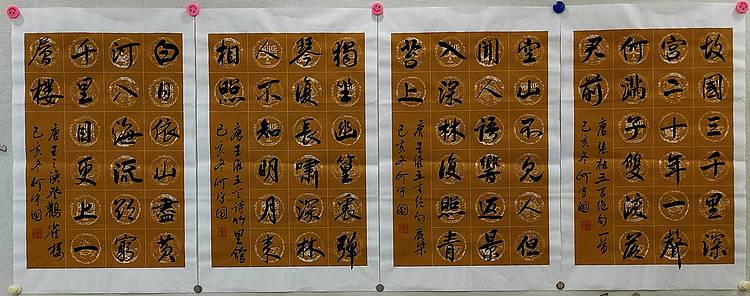 故國三千里深
宮二十年一聲
何滿子雙淚落
君前
唐張祜五言絕句一首
己亥冬何守國
空山不見人但
聞人語響返景
入深林復照青
苔上
唐王維五言絕句鹿柴
己亥冬何守國
獨坐幽篁裏彈
琴復長嘯深林
人不知明月來
相照
唐王維五言詩竹里館
己亥冬何守國
白日依山盡黃
河入海流欲窮
千里目更上一
層樓
唐王之渙登鸛雀樓
己亥冬何守國